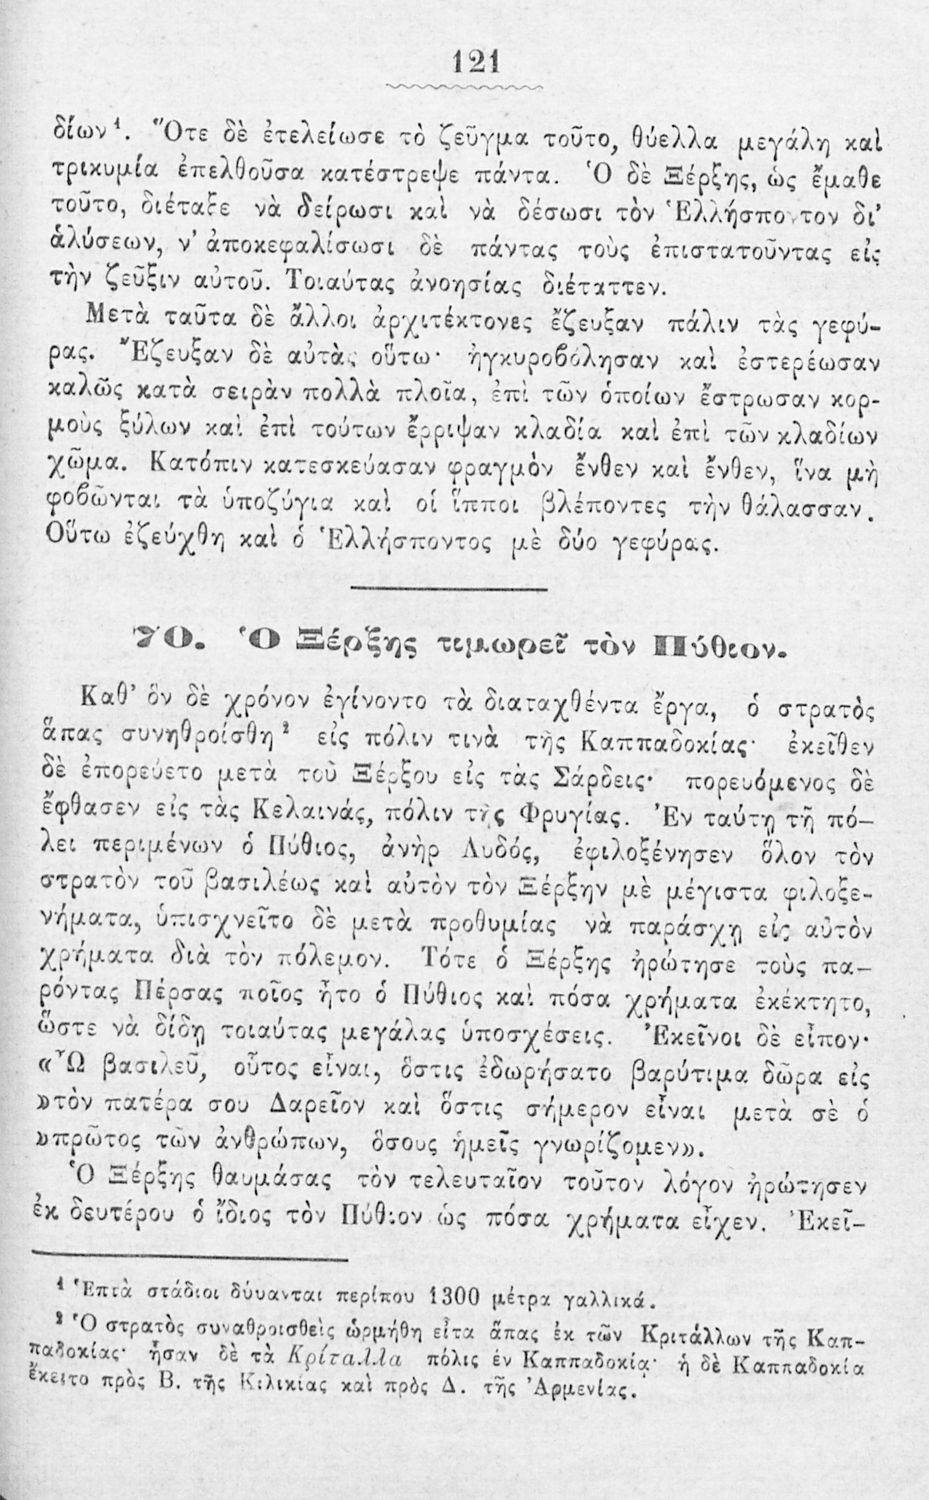 121
δίων¹. Ὅτε δὲ ἐτελείωσε τὸ ζεῦγμα τοῦτο, θύελλα μεγάλη καὶ
τρικυμία ἐπελθοῦσα κατέστρεψε πάντα. Ὁ δὲ Ξέρξης, ὡς ἔμαθε
τοῦτο, διέταξε νὰ δείρωσι καὶ νὰ δέσωσι τὸν Ἑλλήσποντον δι’
ἁλύσεων, ν’ ἀποκεφαλίσωσι δὲ πάντας τοὺς ἐπιστατοῦντας εἰς
τὴν ζεῦξιν αὐτοῦ. Τοιαύτας ἀνοησίας διέταττεν.
Μετὰ ταῦτα δὲ ἄλλοι ἀρχιτέκτονες ἔζευξαν πάλιν τὰς γεφύ-
ρας. Ἔζευξαν δὲ αὐτὰς οὕτω· ἠγκυροβόλησαν καὶ ἐστερέωσαν
καλῶς κατὰ σειρὰν πολλὰ πλοῖα, ἐπὶ τῶν ὁποίων ἔστρωσαν κορ-
μοὺς ξύλων καὶ ἐπὶ τούτων ἔρριψαν κλαδία καὶ ἐπὶ τῶν κλαδίων
χῶμα. Κατόπιν κατεσκεύασαν φραγμὸν ἔνθεν καὶ ἔνθεν, ἵνα μὴ
φοβῶνται τὰ ὑποζύγια καὶ οἱ ἵπποι βλέποντες τὴν θάλασσαν.
Οὕτω ἐζεύχθη καὶ ὁ Ἑλλήσποντος μὲ δύο γεφύρας.
70. Ὁ Ξέρξης τιμωρεῖ τὸν Πύθιον.
Καθ’ ὃν δὲ χρόνον ἐγίνοντο τὰ διαταχθέντα ἔργα, ὁ στρατὸς
ἅπας συνηθροίσθη² εἰς πόλιν τινὰ τῆς Καππαδοκίας· ἐκεῖθεν
δὲ ἐπορεύετο μετὰ τοῦ Ξέρξου εἰς τὰς Σάρδεις· πορευόμενος δὲ
ἔφθασεν εἰς τὰς Κελαινάς, πόλιν τῆς Φρυγίας. Ἐν ταύτῃ τῇ πό-
λει περιμένων ὁ Πύθιος, ἀνὴρ Λυδός, ἐφιλοξένησεν ὅλον τὸν
στρατὸν τοῦ βασιλέως καὶ αὐτὸν τὸν Ξέρξην μὲ μέγιστα φιλοξε-
νήματα, ὑπισχνεῖτο δὲ μετὰ προθυμίας νὰ παράσχῃ εἰς αὐτὸν
χρήματα διὰ τὸν πόλεμον. Τότε ὁ Ξέρξης ἠρώτησε τοὺς πα-
ρόντας Πέρσας ποῖος ἦτο ὁ Πύθιος καὶ πόσα χρήματα ἐκέκτητο,
ὥστε νὰ δίδῃ τοιαύτας μεγάλας ὑποσχέσεις. Ἐκεῖνοι δὲ εἶπον·
«Ὦ βασιλεῦ, οὗτος εἶναι, ὅστις ἐδωρήσατο βαρύτιμα δῶρα εἰς
»τὸν πατέρα σου Δαρεῖον καὶ ὅστις σήμερον εἶναι μετὰ σὲ ὁ
»πρῶτος τῶν ἀνθρώπων, ὅσους ἡμεῖς γνωρίζομεν».
Ὁ Ξέρξης θαυμάσας τὸν τελευταῖον τοῦτον λόγον ἠρώτησεν
ἐκ δευτέρου ὁ ἴδιος τὸν Πύθιον ὡς πόσα χρήματα εἶχεν. Ἐκεῖ-
¹ Ἑπτὰ στάδιοι δύυανται περίπου 1300 μέτρα γαλλικά.
² Ὁ στρατὸς συναθροισθεὶς ὡρμήθη εἶτα ἅπας ἐκ τῶν Κριτάλλων τῆς Καπ-
παδοκίας· ἦσαν δὲ τὰ Κρίταλλα πόλις ἐν Καππαδοκίᾳ· ἡ δὲ Καππαδοκία
ἔκειτο πρὸς Β. τῆς Κιλικίας καὶ πρὸς Δ. τῆς Ἀρμενίας.